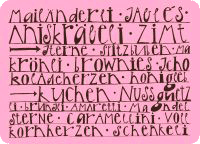 mailänderli · jaules ·
anis krabeli · zimt
sterne · spitzbuben · ma
kröneli · brownies · scho
koladeherzen · honigleb
kuchen · nussguetz
li · brunsli · amaretti · mandel
sterne · caramellini · voll
kornherzen · schenkeli